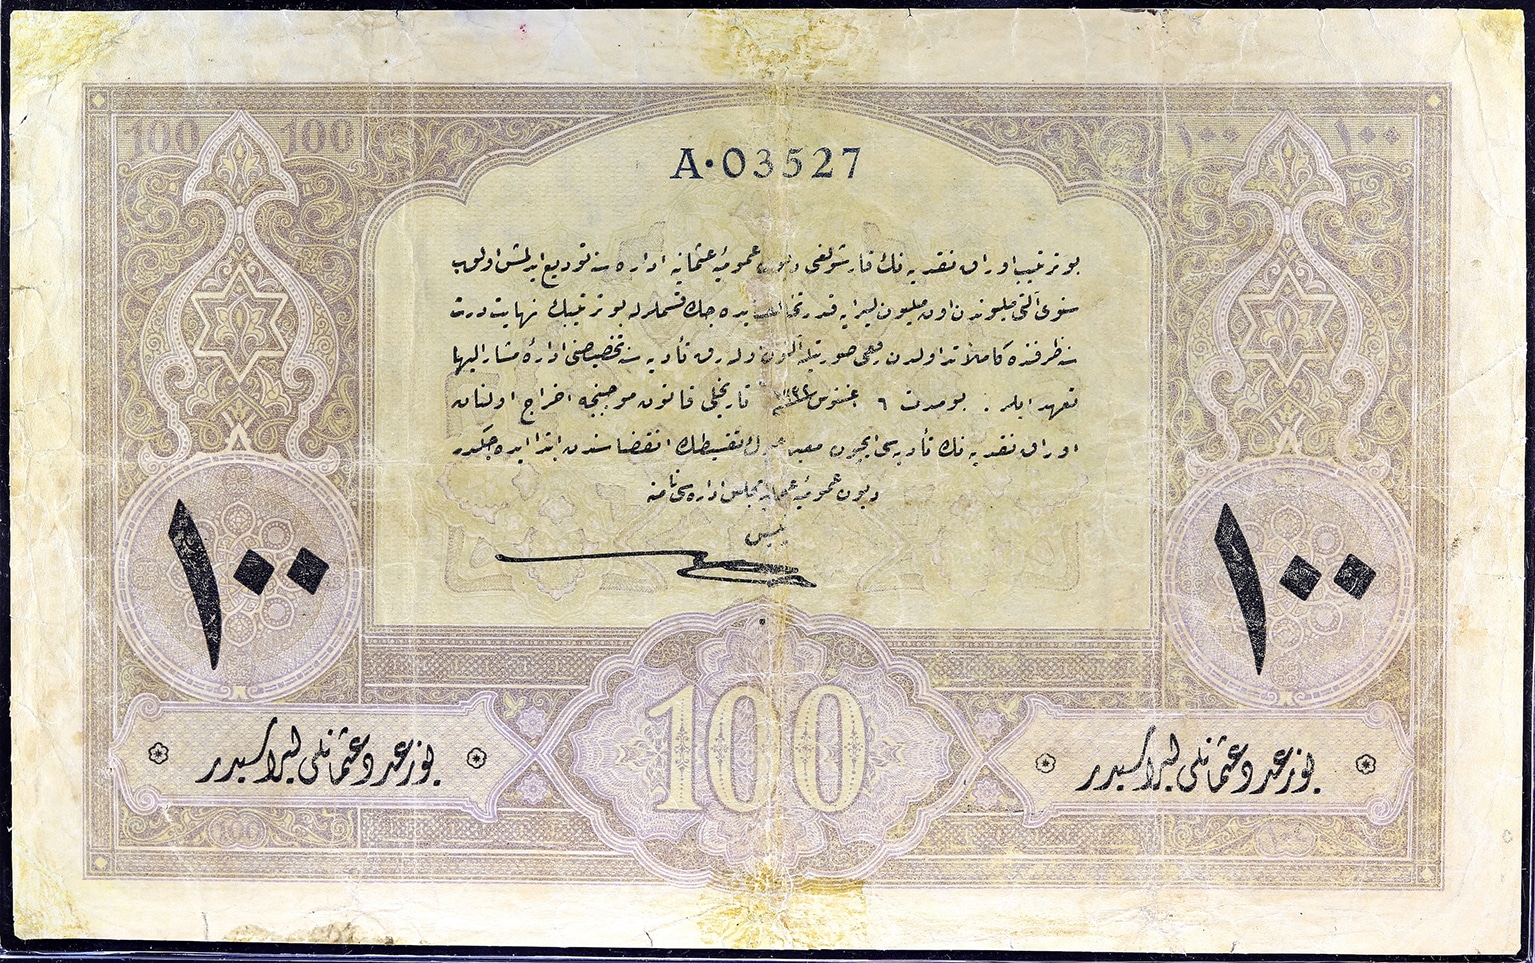 100 100
١٠٠ ١٠٠
A·03527
بو ترتیب اوراق نقدیه نك قارشولغی دیون عمومیهٔ عثمانیه اداره سنه تودیع ایدلمش اولوب
سنوی آلتی ملیوندن اون ملیون لیرایه قدر تخالف ایده جك قسملرله بو ترتیبك نهایت درت
سنه ظرفنده كاملاً تداولدن رفعی صورتیله آلتون اوله رق تأدیه سنه تخصیصنی ادارهٔ مشار الیها
تعهد ایلر . بو مدت ٦ اغستوس تاریخلی قانون موجبنجه اخراج اولنان
اوراق نقدیه نك تأدیه سی ایچون معین تقسیطك انقضاسندن ابتدا ایده جكدر
دیون عمومیهٔ عثمانیه مجلس اداره سی نامنه
رئیس
١٠٠
١٠٠
100
یوز عدد عثمانلی لیراسیدر
یوز عدد عثمانلی لیراسیدر
100
١٠٠